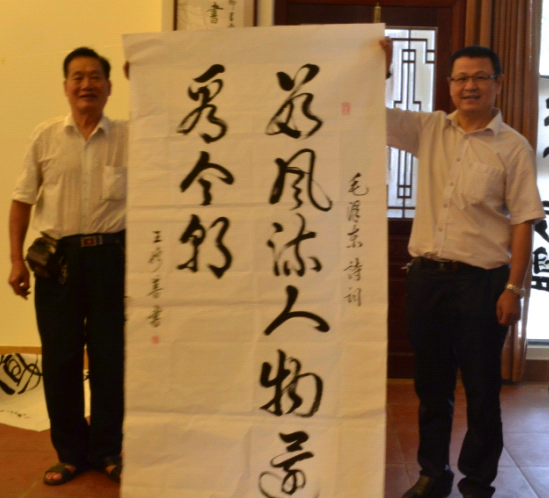 毛澤東詩詞
數風流人物還
看今朝
王 善書
書